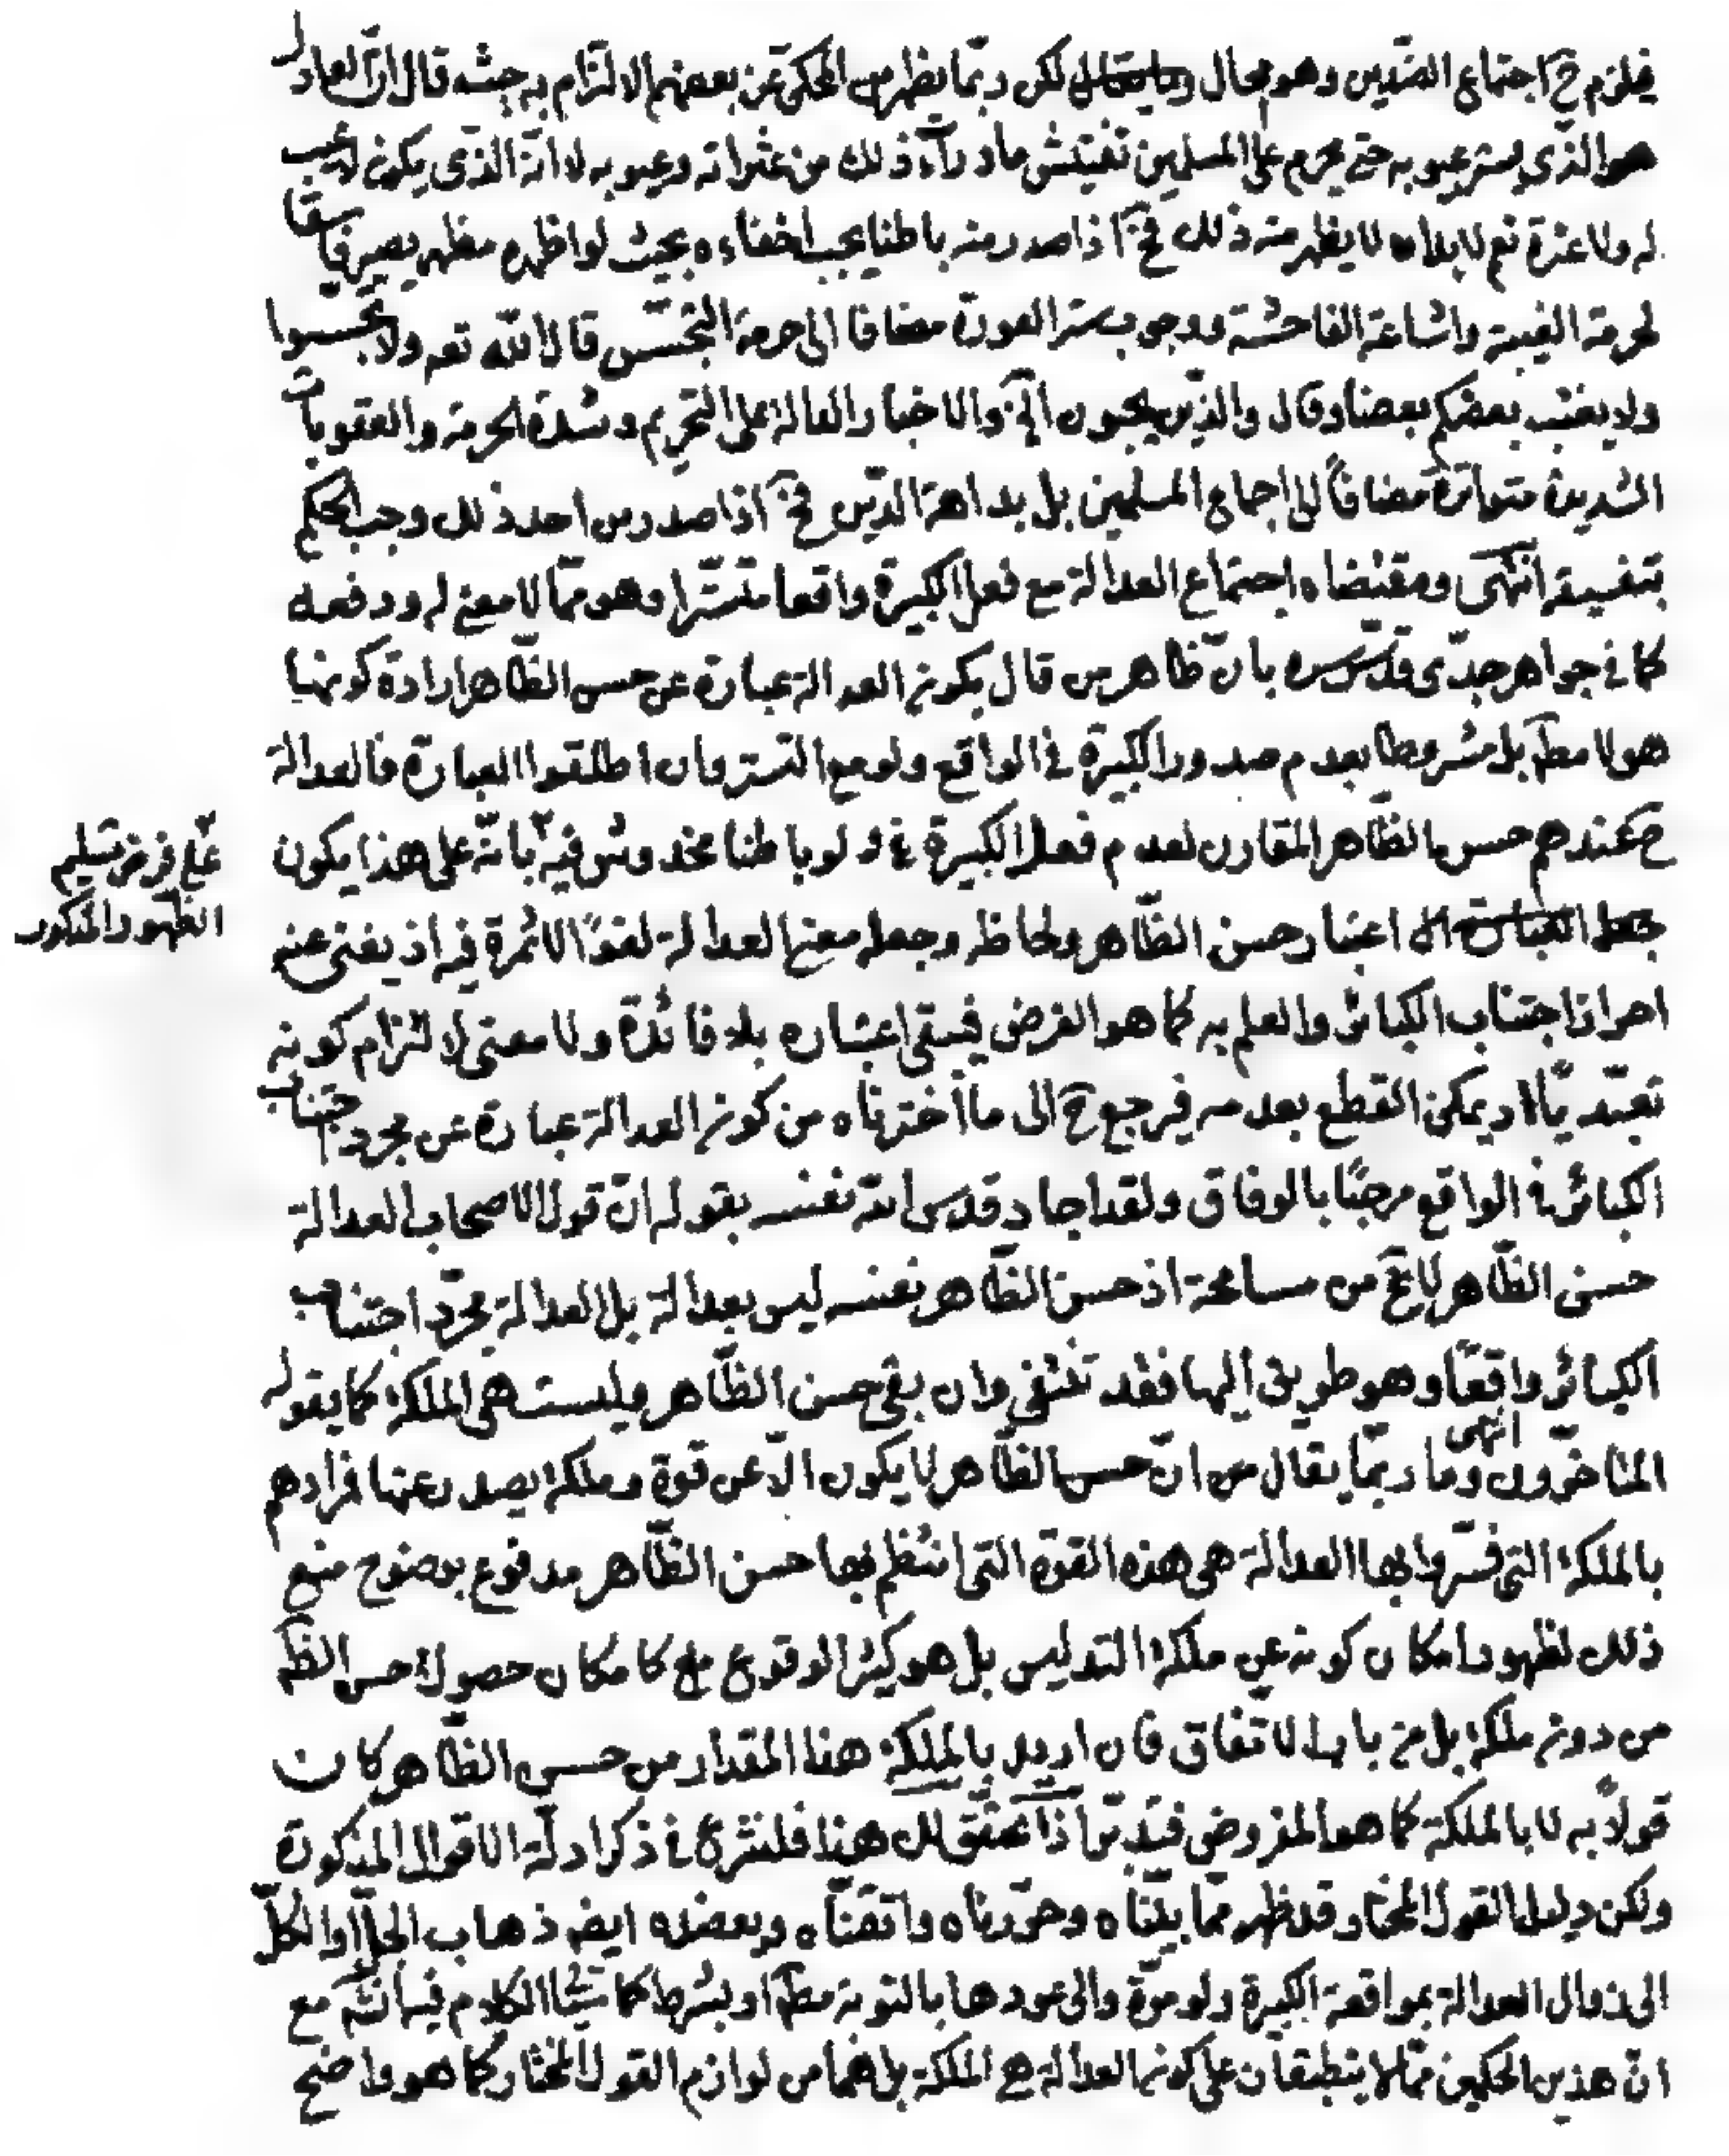 فيلزم ح اجتماع الضدين وهو محال لكن ربما يظهر من المحكي عن بعضهم الالتزام به حيث قال ان العادل
هو الذي يستر عيوبه حتى يحرم على المسلمين تفتيش ما وراء ذلك من عثراته وعيوبه لا انه الذي يكون لا عيب
له ولا عثرة نعم لابد ان لا يظهر منه ذلك فح اذا صدر منه باطنا يجب اخفاءه بحيث لو اظهره مظهر يصير فاسقا
لحرمة الغيبة واشاعة الفاحشة ووجوب ستر العورة مضافا الى حرمة التجسس قال الله تعم ولا تجسسوا
ولا يغتب بعضكم بعضا وقال والذين يحبون الآية والاخبار الدالة على التحريم وشدة الحرمة والعقوبات
الشديدة متواترة مضافاً الى اجماع المسلمين بل بداهة الدين فح اذا صدر من احد ذلك وجب الحكم
بتفسيقه انتهى ومقتضاه اجتماع العدالة مع فعل الكبيرة واقعا متسترا وهو مما لا معنى له ودفعه
كما في جواهر جدي قدس سره بان ظاهر من قال بكون العدالة عبارة عن حسن الظاهر ارادة كونها
هو لا مط بل مشروطا بعدم صدور الكبيرة في الواقع ولو مع التستر وان اطلقوا العبارة فالعدالة
ح عندهم حسن الظاهر المقارن لعدم فعل الكبيرة ولو باطنا مخدوش فيه بانه على هذا يكون
اعتبار حسن الظاهر ولحاظه وجعله معنى العدالة لغوًا لا ثمرة فيه اذ يغنى عنه
احراز اجتناب الكبائر والعلم به كما هو الفرض فيبقى اعتباره بلا فائدة ولا معنى لالتزام كونه
تعبديا اذ يمكن القطع بعدمه فيرجع ح الى ما اخترناه من كون العدالة عبارة عن مجرد اجتناب
الكبائر في الواقع مرحبًا بالوفاق ولقد اجاد قدس الله نفسه بقوله ان قول الاصحاب العدالة
حسن الظاهر لا يخ من مسامحة اذ حسن الظاهر نفسه ليس بعدالة بل العدالة مجرد اجتناب
الكبائر واقعًا وهو طريق اليها فقد تنتفي وان بقي حسن الظاهر وليست هي الملكة كما يقوله
المتاخرون انتهى وما ربما يقال من ان حسن الظاهر لا يكون الا عن قوة وملكة يصدر عنها فمرادهم
بالملكة التي فسروا بها العدالة هي هذه القوة التي انتظم بها حسن الظاهر مدفوع بوضوح منع
ذلك لظهور امكان كونه عن ملكة التدليس بل هو كثير الوقوع كامكان حصول حسن الظ
من دون ملكة بل من باب الاتفاق فان اريد بالملكة هذا المقدار من حسن الظاهر كان
قولاً به لا بالملكة كما هو المفروض فتدبر اذا تحقق لك هذا فلنشرع في ذكر ادلة الاقوال المذكورة
ولكن دليل القول المختار قد ظهر مما بيناه وحررناه واتقناه ويعضده ايض ذهاب الجل او الكل
الى زوال العدالة بمواقعة الكبيرة ولو مرة والى عودها بالتوبة مط او بشرط كما سيأتي الكلام فيه انش مع
ان هذين الحكمين مما لا ينطبقان على كون العدالة هي الملكة بل هما من لوازم القول المختار كما هو واضح
على فرض تسليم
الظهور المذكور